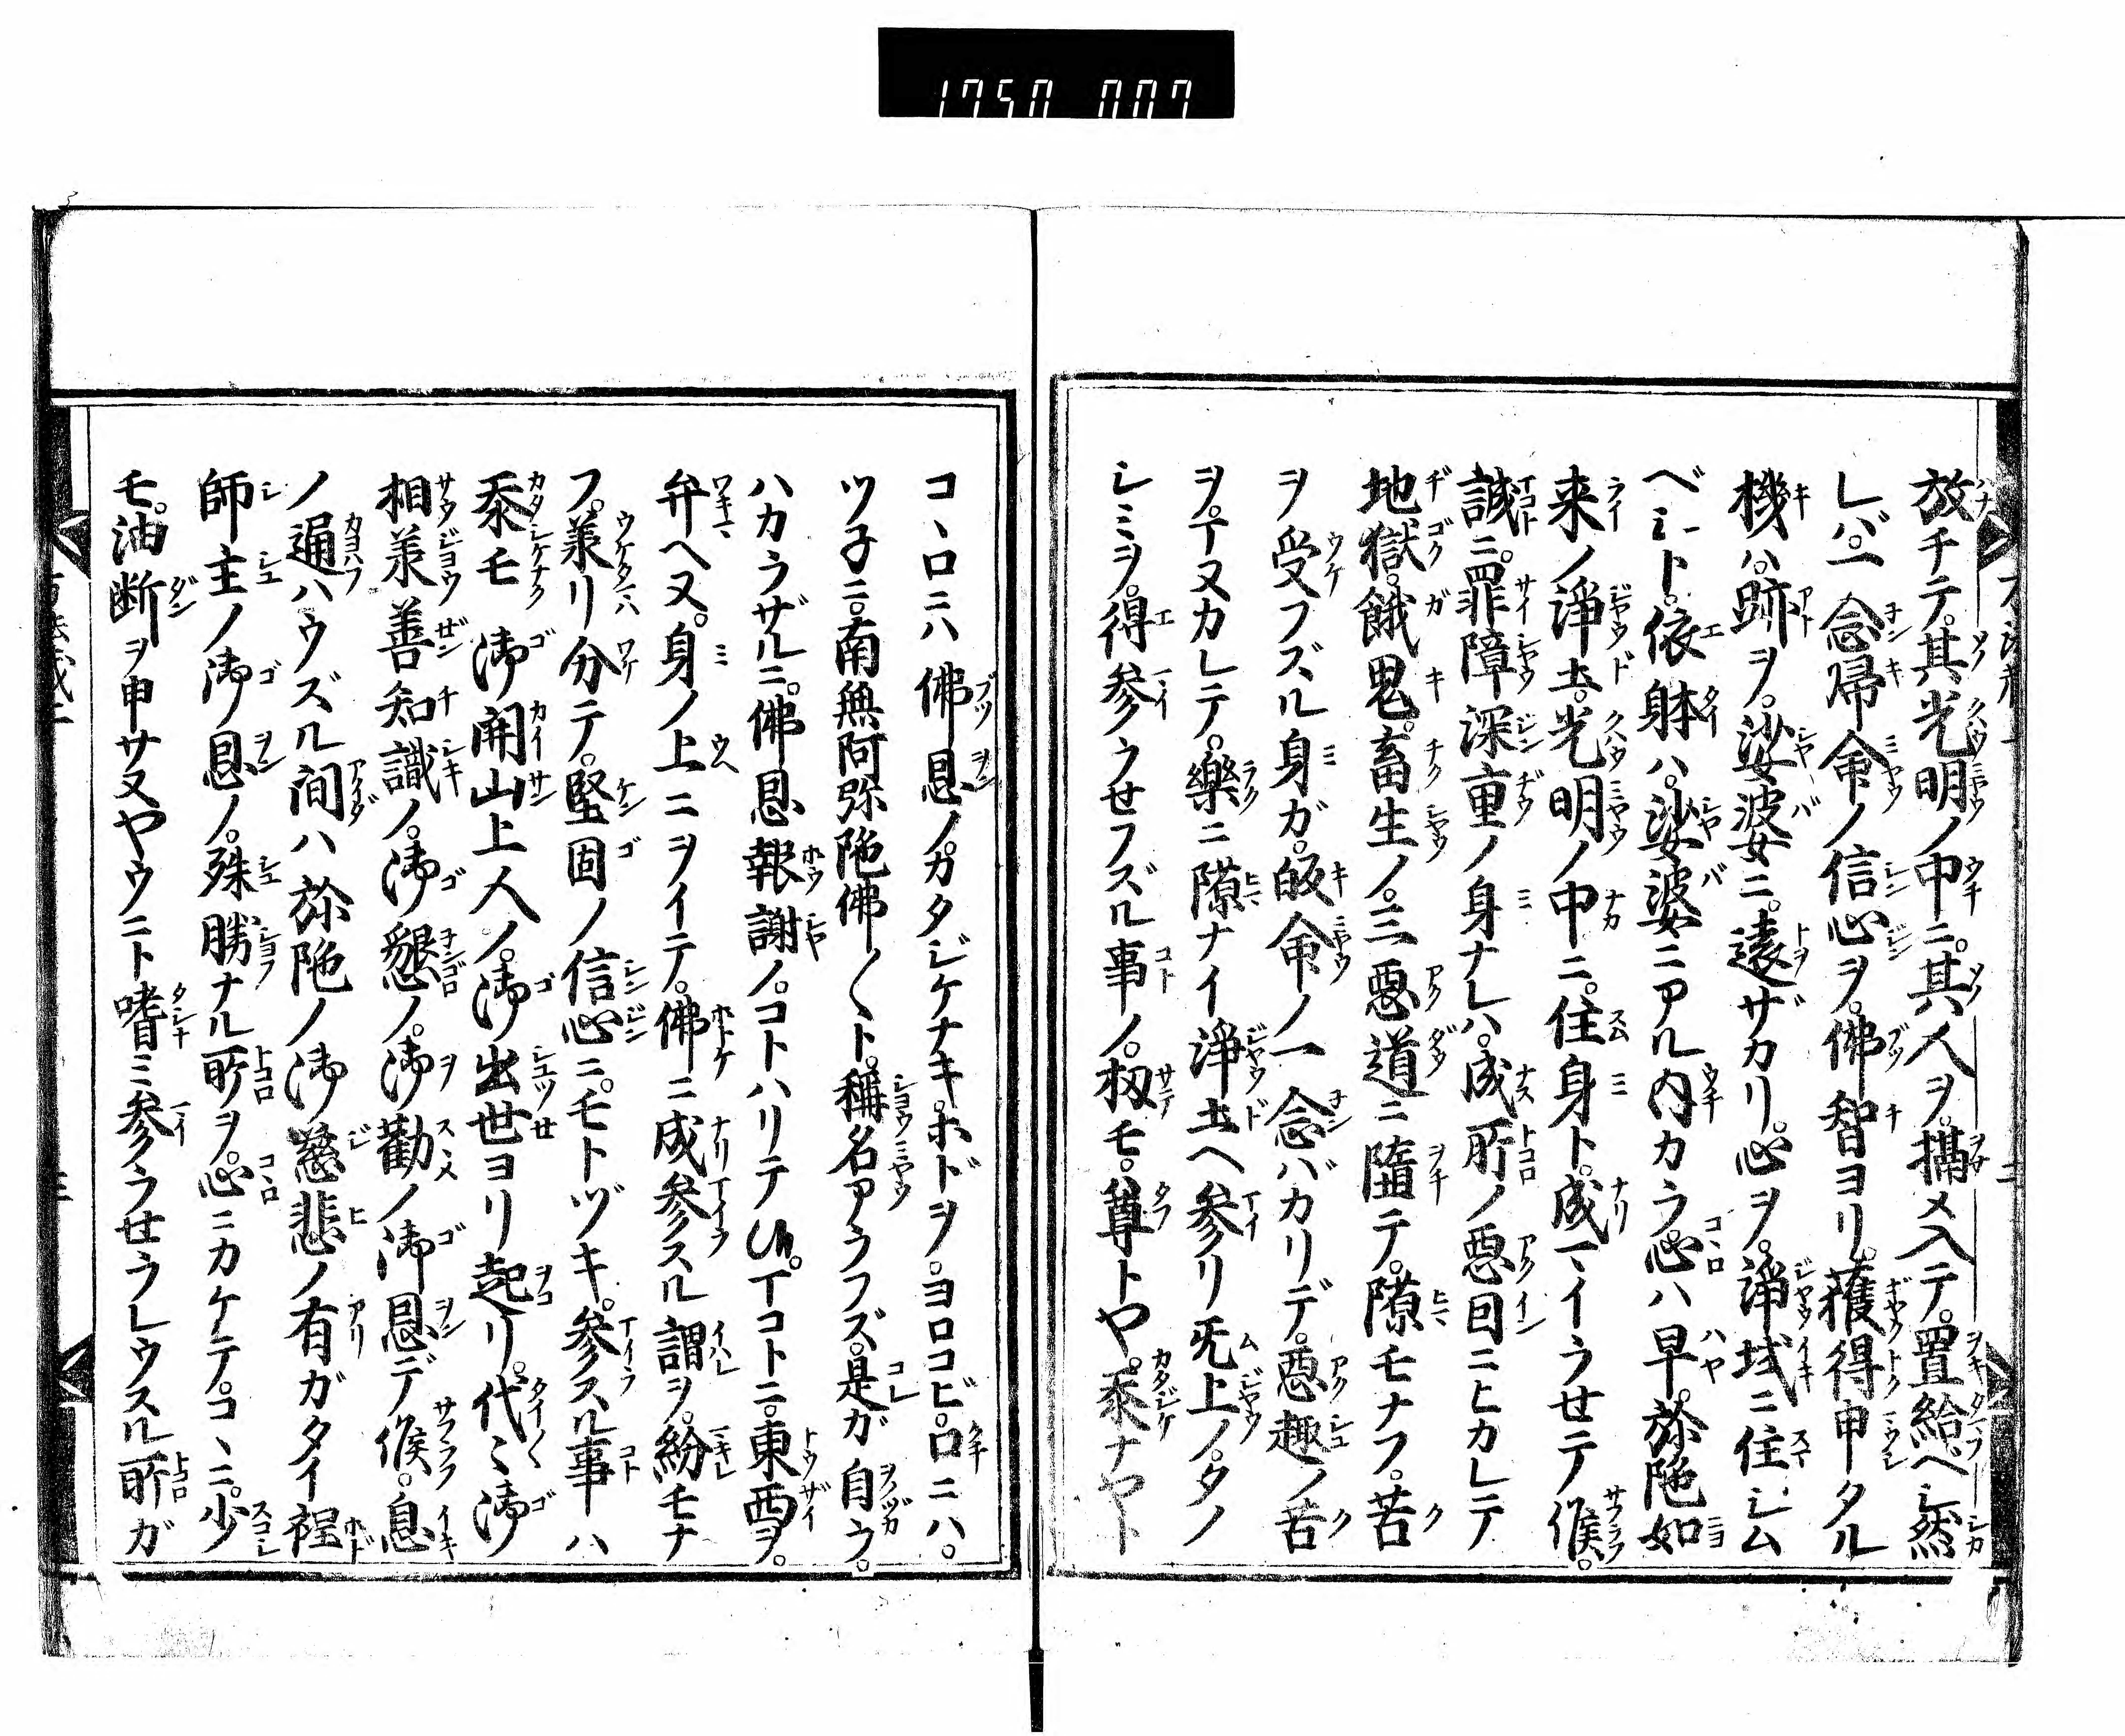 1750 007
放チテ。其光明ノ中ニ。其人ヲ。攝メ入テ。置給ベシ然
レバ。一念帰命ノ信心ヲ。佛智ヨリ。獲得申タル
機ハ。跡ヲ。娑婆ニ。遠ザカリ。心ヲ。浄域ニ住シム
ベシト。依躰ハ。娑婆ニアル内カラ。心ハ早。弥陁如
来ノ浄土。光明ノ中ニ。住身ト。成マイラせテ候。
誠ニ。罪障深重ノ身ナレハ。成所ノ悪因ニヒカレテ
地獄。餓鬼。畜生ノ。三悪道ニ墮テ。隙モナフ。苦
ヲ受フズル身ガ。皈命ノ一念バカリデ。悪趣ノ苦
ヲ。マヌカレテ。樂ニ隙ナイ浄土ヘ参リ旡上ノ。タノ
シミヲ。得参ラせフズル事ノ。扨モ。尊トや。忝ナヤト
コヽロニハ佛恩ノ。カタジケナキ。ホドヲ。ヨロコビ。口ニハ。
ツ子ニ。南無阿弥陁佛〱ト。稱名アラフズ。是ガ自ラ。
ハカラザルニ。佛恩報謝ノ。コトハリテ候。マコトニ。東西ヲ。
弁ヘヌ。身ノ上ニヲイテ。佛ニ成参スル謂ヲ。紛モナ
フ。羕リ分テ。堅固ノ信心ニ。モトヅキ。参スル事ハ
忝モ御開山上人ノ。御出世ヨリ起リ。代〻御
相羕善知識ノ。御懇ノ。御勸ノ御恩デ候。息
ノ通ハウズル間ハ弥陁ノ御慈悲ノ有ガタイ程
師主ノ御恩ノ。殊勝ナル所ヲ。心ニカケテ。コヽニ。少
モ。油断ヲ申サヌやウニト嗜ミ参ラせラレウスル所ガ